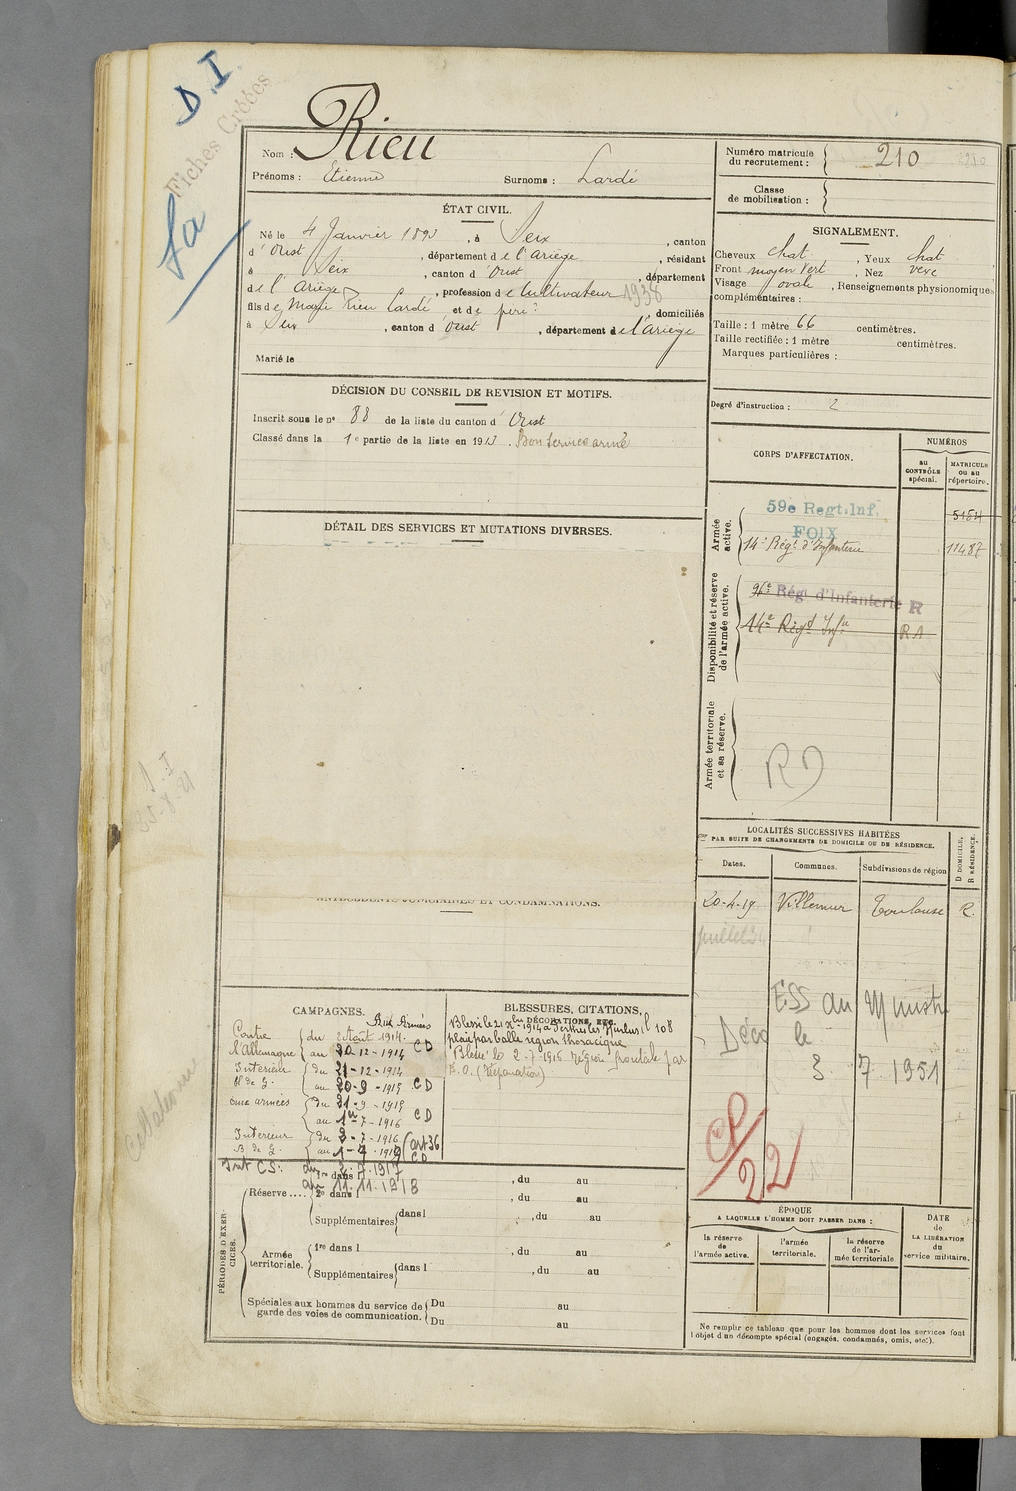 D.I.
Fiches Créées
fa
Nom : Rieu
Prénoms : Etienne Surnoms : Lardé
Numéro matricule du recrutement : 210
Classe de mobilisation :
ÉTAT CIVIL.
Né le 4 Janvier 1893, à Seix, canton
d'Oust, département de l'Ariège, résidant
à Seix, canton d'Oust, département
de l'Ariège, profession de Cultivateur 1938
fils de Marie Rieu Lardé et de père : domiciliés
à Seix, canton d'Oust, département de l'Ariège
Marié le
SIGNALEMENT.
Cheveux chat, Yeux chat
Front moyen vert, Nez vexe
Visage ovale, Renseignements physionomiques
complémentaires :
Taille : 1 mètre 66 centimètres.
Taille rectifiée : 1 mètre centimètres.
Marques particulières :
Degré d'instruction : 2
DÉCISION DU CONSEIL DE REVISION ET MOTIFS.
Inscrit sous le n° 88 de la liste du canton d'Oust
Classé dans la 1e partie de la liste en 1913. Bon service armé
DÉTAIL DES SERVICES ET MUTATIONS DIVERSES.
CORPS D'AFFECTATION.
NUMÉROS
au CONTRÔLE spécial.
MATRICULE ou au répertoire.
Armée active.
59e Regt. Inf. FOIX
14e Régt d'Infanterie 11487
Disponibilité et réserve de l'armée active.
96e Régt d'Infanterie R
14e Régt Infie R1
Armée territoriale et sa réserve.
RD
LOCALITÉS SUCCESSIVES HABITÉES
PAR SUITE DE CHANGEMENTS DE DOMICILE OU DE RÉSIDENCE.
Dates. Communes. Subdivisions de région D DOMICILE, R RÉSIDENCE.
20-4-19 Villemur Toulouse R.
ESS au Ministre
Déco le
3 7 1951
CP/22
ANTÉCÉDENTS JUDICIAIRES ET CONDAMNATIONS.
CAMPAGNES.
Aux Armées
Contre l'Allemagne du 2 Août 1914 au 20-12-1914 CD
Intérieur B. de G. du 21-12-1914 au 20-9-1915 CD
aux armées du 21-9-1915 au 1er-7-1916 CD
Intérieur B. de G. du 2-7-1916 au 1-7-1917 (art 36 CD
Int CS: du 2.7.1917
au 11.11.1918
BLESSURES, CITATIONS, DÉCORATIONS, ETC.
Blessé le 21 Xbre 1914 à Perthes les Hurlus
plaie par balle région thoracique
Blessé le 2-7-1916 région frontale par
E.O. (Réparation)
PÉRIODES D'EXERCICES.
Réserve....
1re dans l , du au
2e dans l , du au
Supplémentaires dans l , du au
Armée territoriale.
1re dans l , du au
Supplémentaires dans l , du au
Spéciales aux hommes du service de garde des voies de communication.
Du au
Du au
ÉPOQUE
A LAQUELLE L'HOMME DOIT PASSER DANS :
la réserve de l'armée active.
l'armée territoriale.
la réserve de l'armée territoriale
DATE de LA LIBÉRATION du service militaire.
Ne remplir ce tableau que pour les hommes dont les services font
l'objet d'un décompte spécial (engagés, condamnés, omis, etc.).